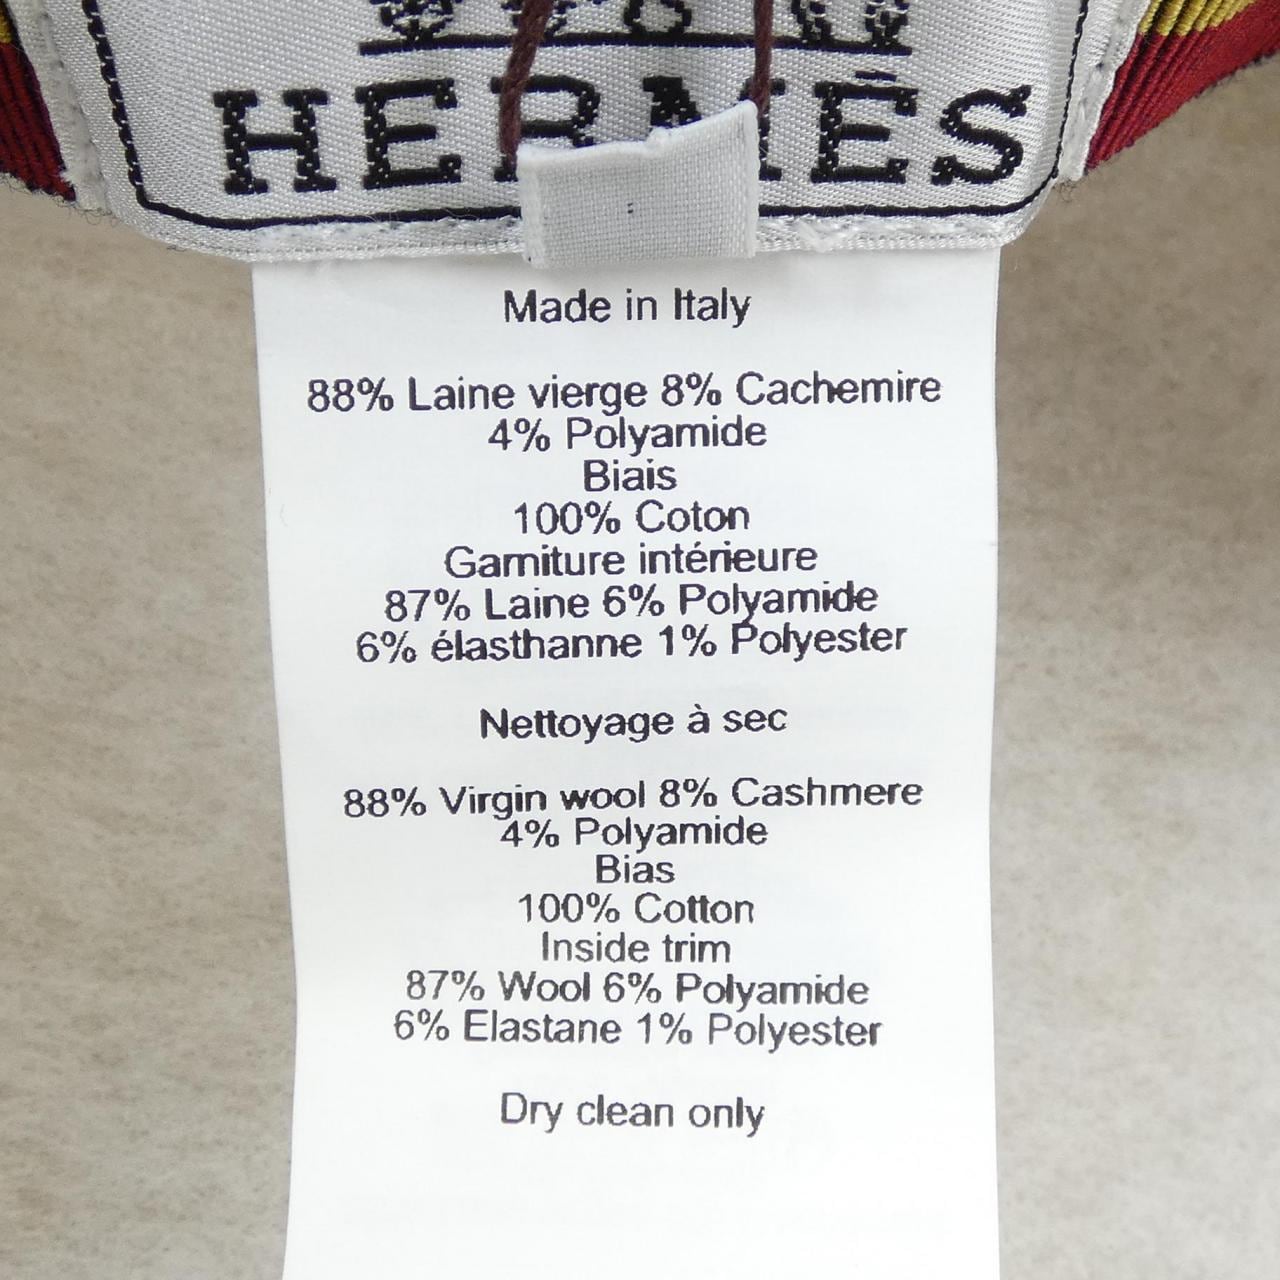 HERMÈS
Made in Italy
88% Laine vierge 8% Cachemire
4% Polyamide
Biais
100% Coton
Garniture intérieure
87% Laine 6% Polyamide
6% élasthanne 1% Polyester
Nettoyage à sec
88% Virgin wool 8% Cashmere
4% Polyamide
Bias
100% Cotton
Inside trim
87% Wool 6% Polyamide
6% Elastane 1% Polyester
Dry clean only